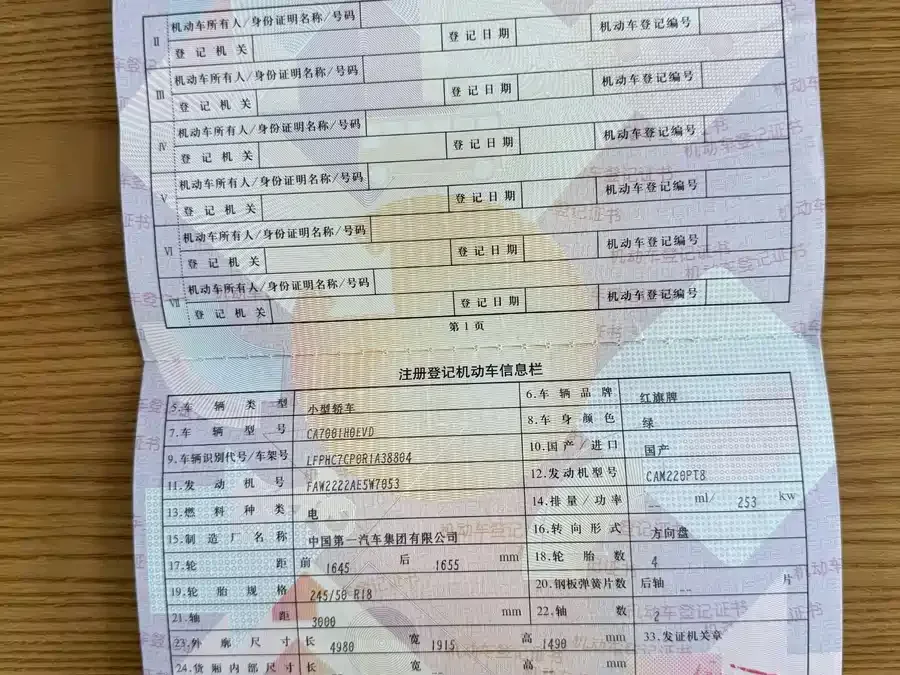 Ⅱ 机动车所有人/身份证明名称/号码
登记机关 登记日期 机动车登记编号
Ⅲ 机动车所有人/身份证明名称/号码
登记机关 登记日期 机动车登记编号
Ⅳ 机动车所有人/身份证明名称/号码
登记机关 登记日期 机动车登记编号
Ⅴ 机动车所有人/身份证明名称/号码
登记机关 登记日期 机动车登记编号
Ⅵ 机动车所有人/身份证明名称/号码
登记机关 登记日期 机动车登记编号
Ⅶ 机动车所有人/身份证明名称/号码
登记机关 登记日期 机动车登记编号
第1页
注册登记机动车信息栏
5.车辆类型 小型轿车 6.车辆品牌 红旗牌
7.车辆型号 CA7001H0EVD 8.车身颜色 绿
9.车辆识别代号/车架号 LFPHC7CP0R1A38804 10.国产/进口 国产
11.发动机号 FAW2222AE5W7053 12.发动机型号 CAM220PT8
13.燃料种类 电 14.排量/功率 -- ml/ 253 kw
15.制造厂名称 中国第一汽车集团有限公司 16.转向形式 方向盘
17.轮距 前 1645 后 1655 mm 18.轮胎数 4
19.轮胎规格 245/50 R18 20.钢板弹簧片数 后轴 -- 片
21.轴距 3000 mm 22.轴数 2
23.外廓尺寸 长 4980 宽 1915 高 1490 mm 33.发证机关章
24.货厢内部尺寸 长 宽 高 mm